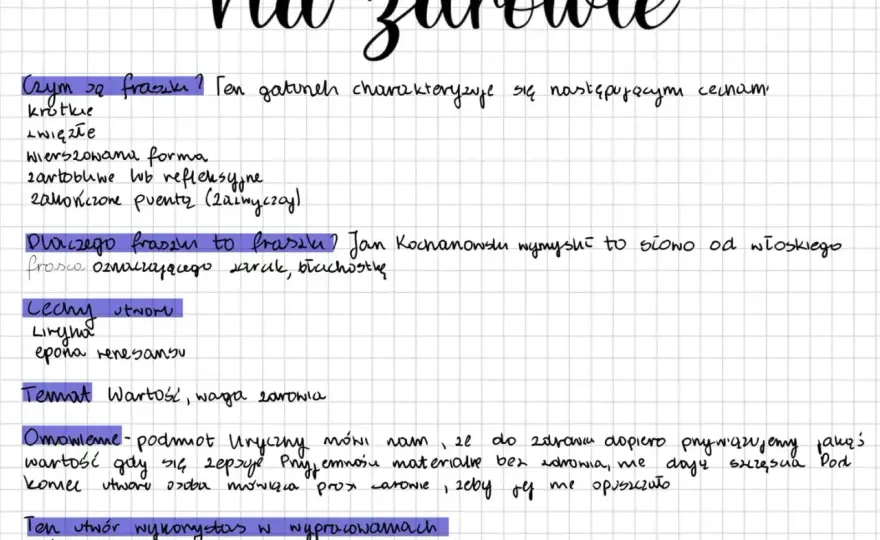 Na zdrowie
Czym są fraszki? Ten gatunek charakteryzuje się następującymi cechami
krótkie
zwięzłe
wierszowana forma
żartobliwe lub refleksyjne
zakończone puentą (zazwyczaj)
Dlaczego fraszki to fraszki? Jan Kochanowski wymyślił to słowo od włoskiego
frasca oznaczającego żarcik, błachostkę
Cechy utworu
Liryka
epoka renesansu
Temat Wartość, waga zdrowia
Omówienie - podmiot liryczny mówi nam, że do zdrowia dopiero przywiązujemy jakąś
wartość gdy się zepsuje Przyjemności materialne bez zdrowia, nie dają szczęścia Pod
koniec utworu osoba mówiąca prosi zdrowie, żeby jej nie opuszczało
Ten utwór wykorzystasz w wypracowaniach